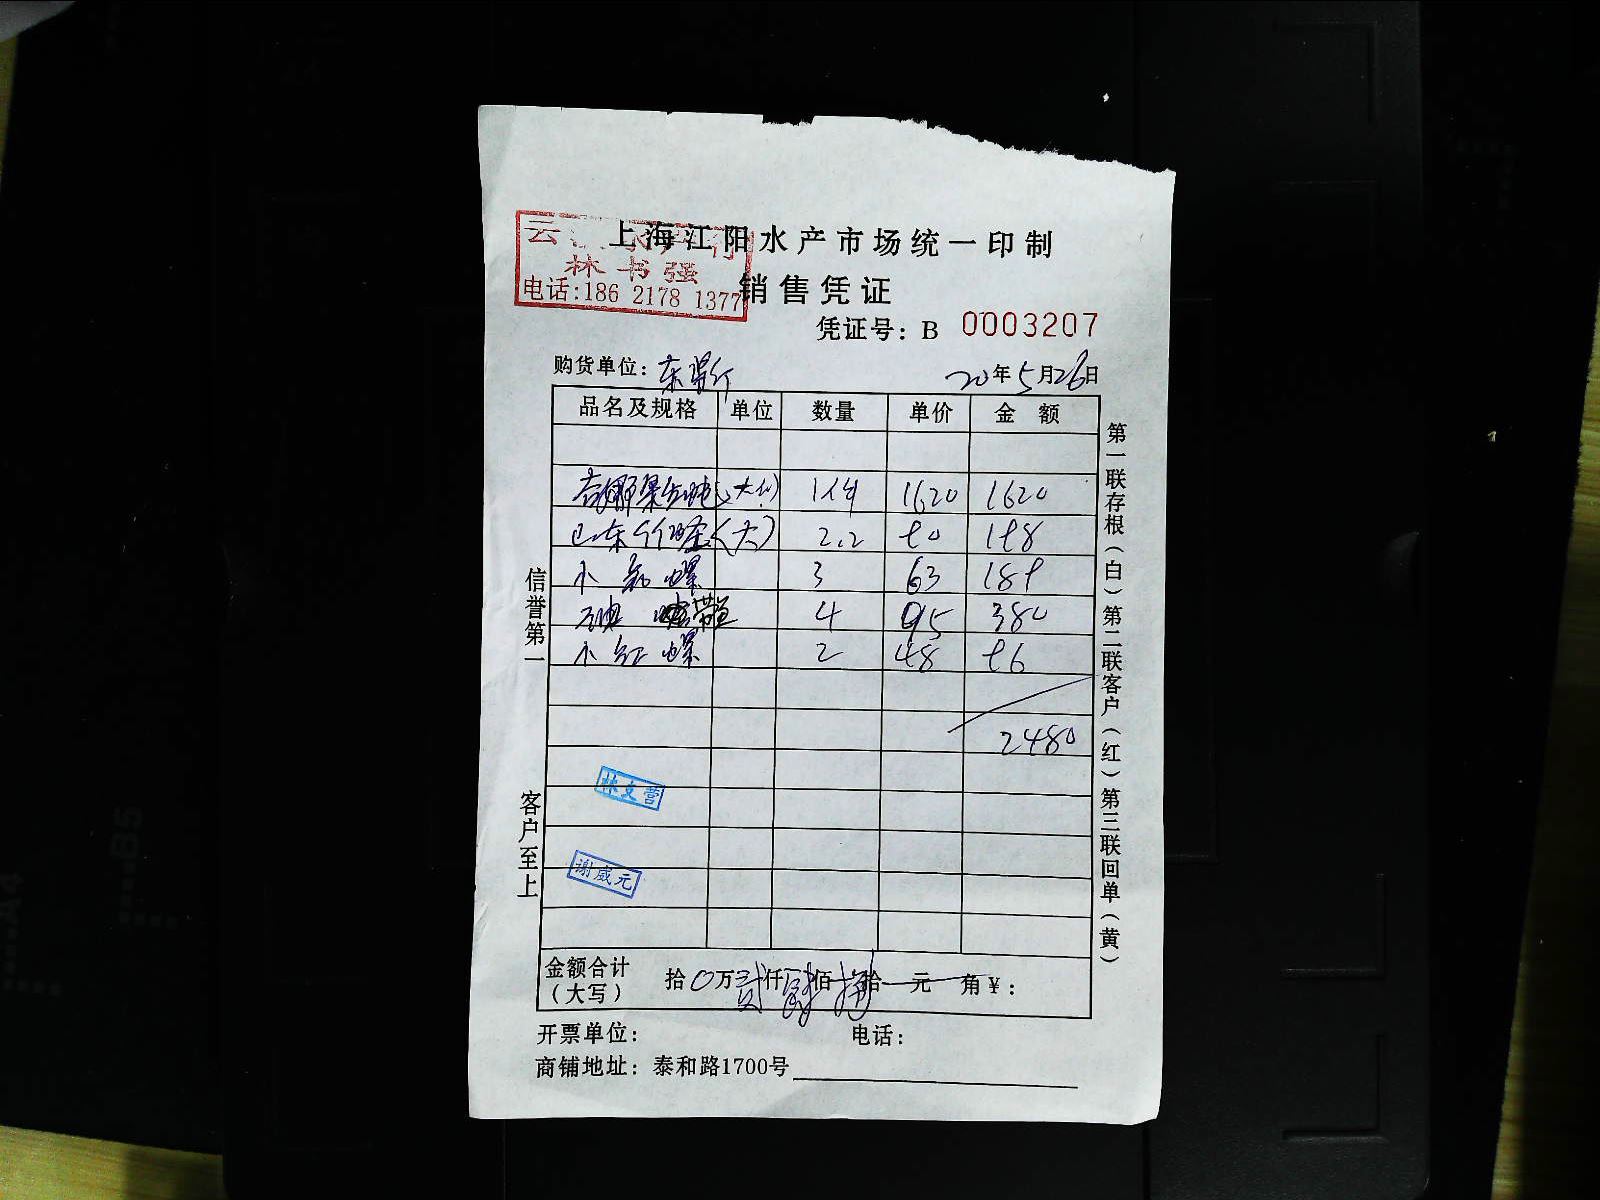 上海江阳水产市场统一印制
林书强
电话:186 2178 1377
销售凭证
凭证号: B 0003207
购货单位:
20年5月26日
品名及规格 单位 数量 单价 金额
1件 1620 1620
(大) 2.2 90 198
小 螺 3 63 189
带 4 95 380
小红螺 2 48 96
2480
林文营
谢威元
金额合计(大写) 拾0万贰仟肆佰捌拾元角¥:
开票单位: 电话:
商铺地址: 泰和路1700号
信誉第一 客户至上
第一联存根(白)第二联客户(红)第三联回单(黄)